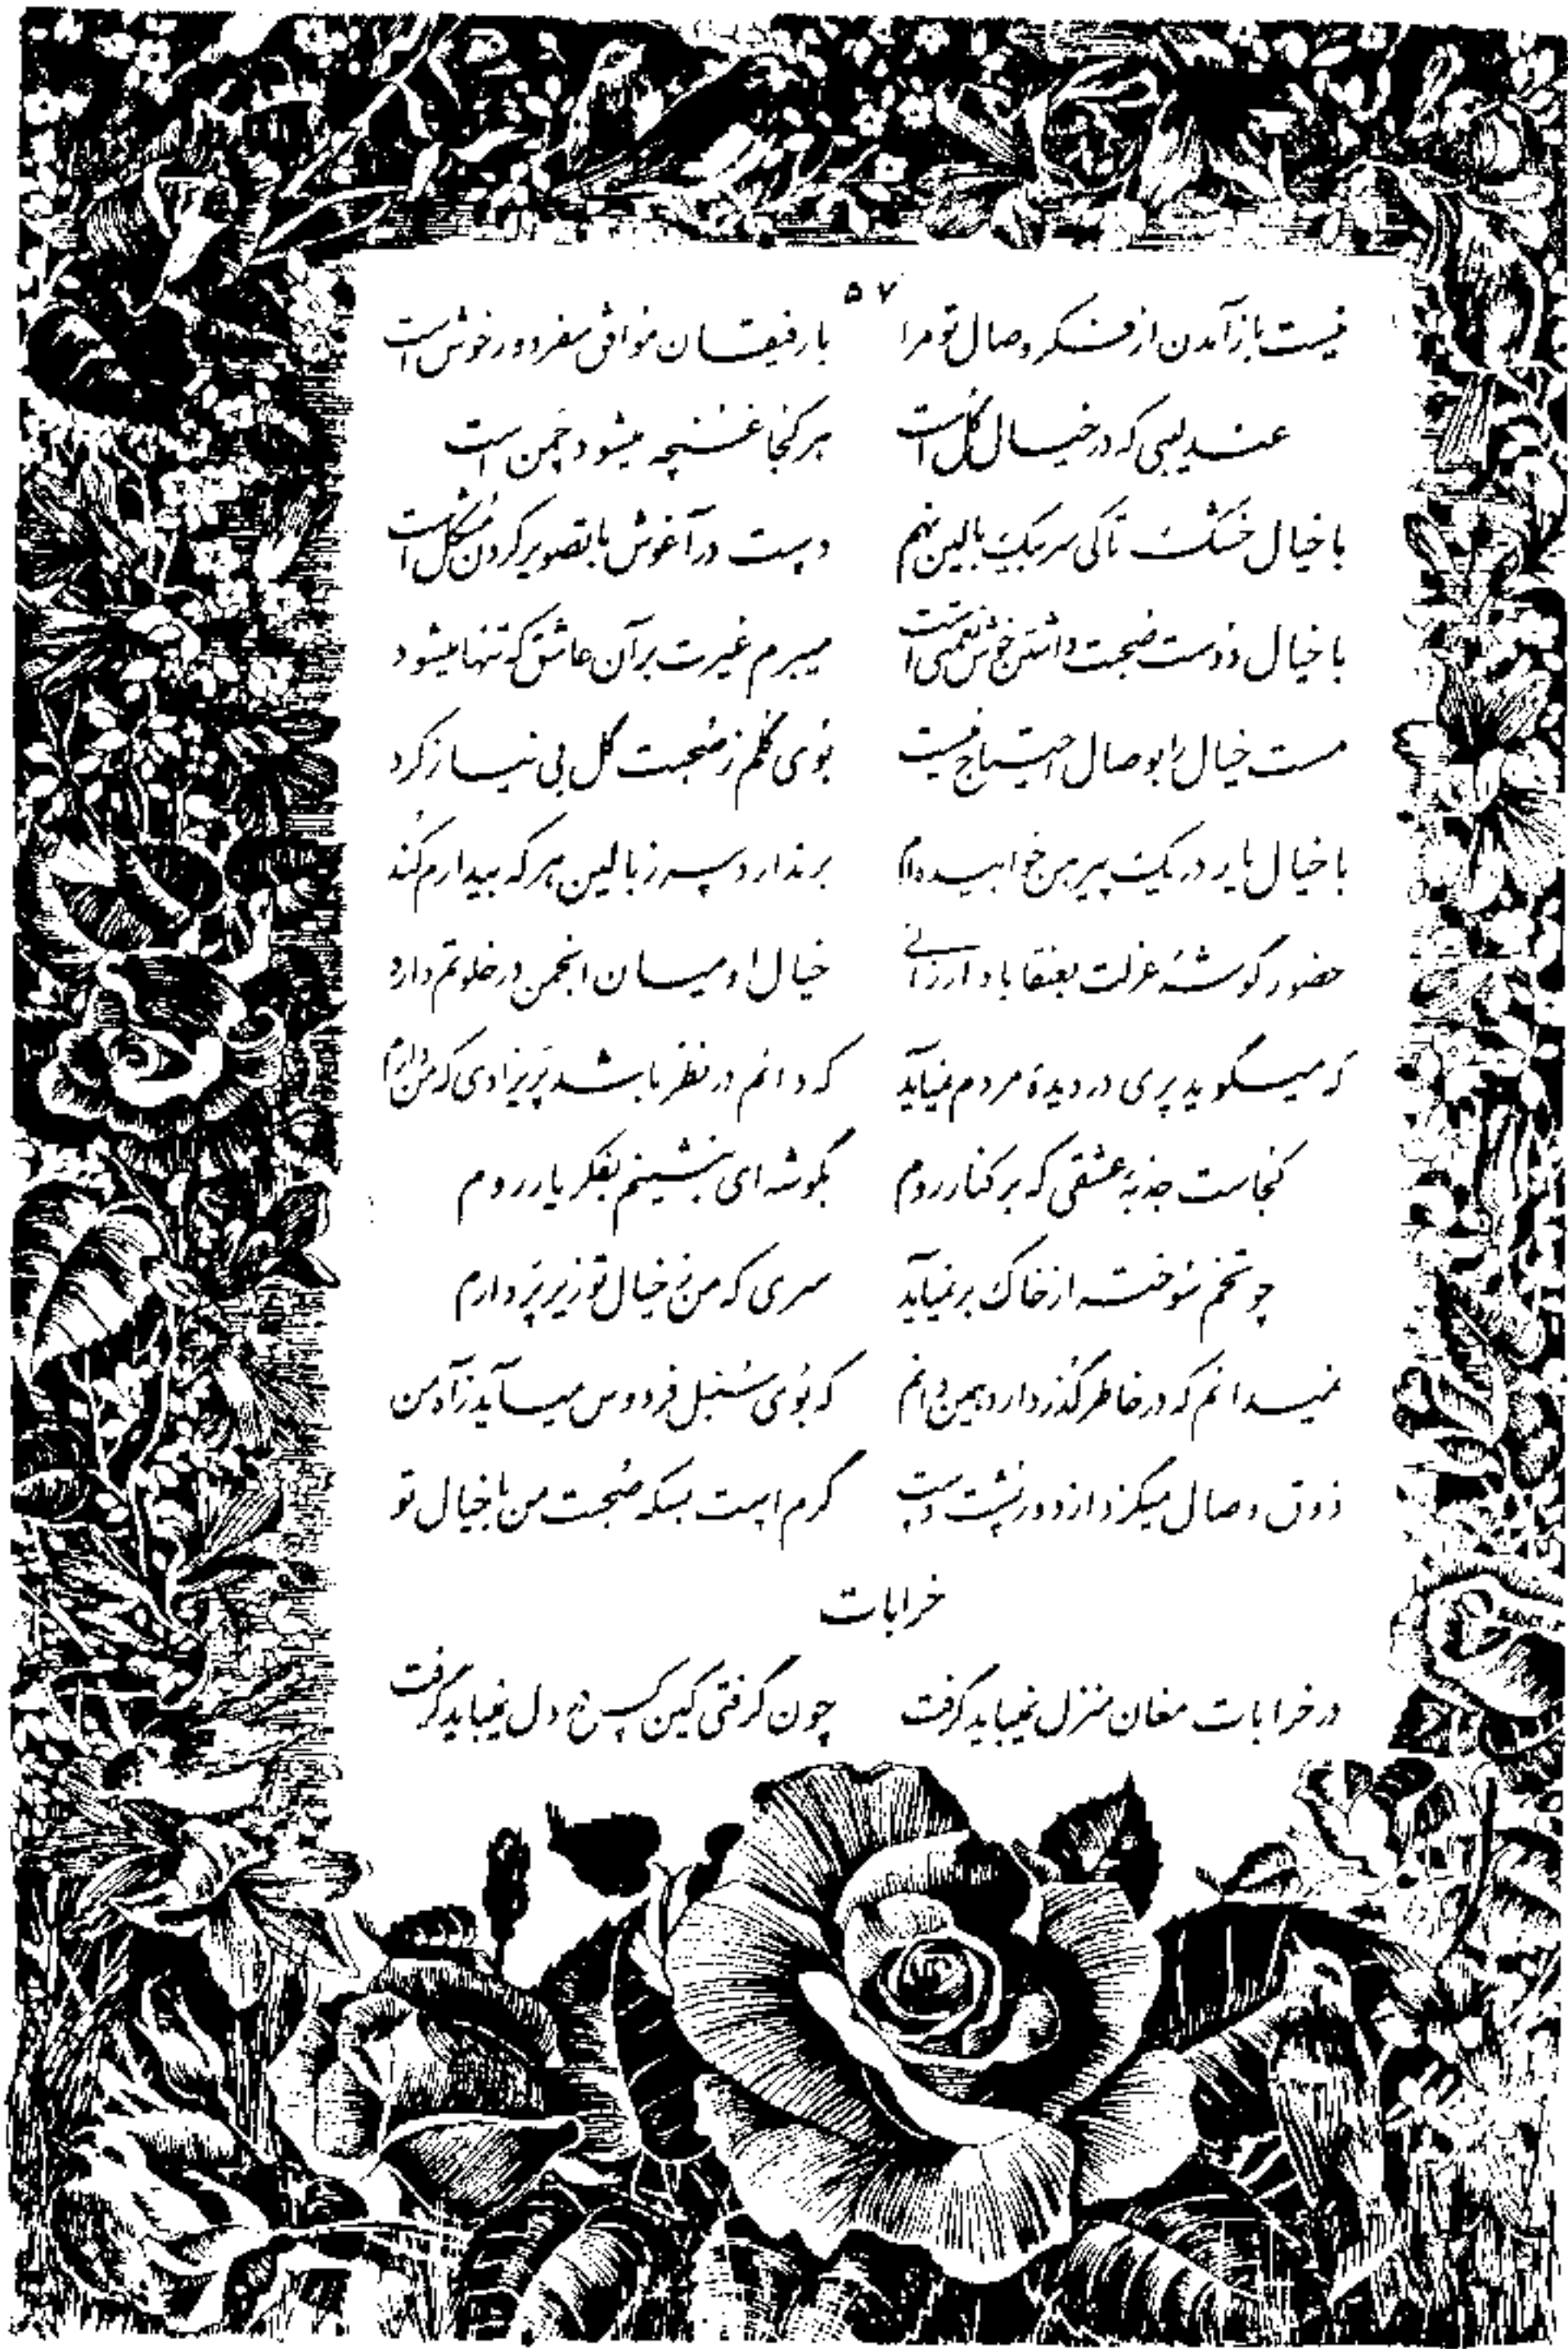 ۵۷
نیست باز آمدن از فکر وصال تو مرا	با رفیقان موافق سفر دور خوش است
عندلیبی که در خیال گل است	هر کجا غنچه میشود چمن است
با خیال خشک تا کی سر بیک بالین نهم	دست در آغوش با تصویر کردن مشکل است
با خیال دوست صحبت داشتن خوش نعمتی است	میبرم غیرت بر آن عاشق که تنها میشود
مست خیال را بوصال احتیاج نیست	بوی گلم ز صحبت گل بی نیاز کرد
با خیال یار در یک پیرهن خوابیده‌ام	بر ندارد سر ز بالین هر که بیدارم کند
حضور گوشهٔ عزلت بعنقا باد ارزانی	خیال او میان انجمن در خلوتم دارد
که میگوید پری در دیدهٔ مردم نمیآید	که دائم در نظر باشد پریزادی که من دارم
کجاست جذبهٔ عشقی که بر کنار روم	بگوشه‌ای بنشینم بفکر یار روم
چو تخم سوخته از خاک بر نمیآید	سری که من ز خیال تو زیر پر دارم
نمیدانم که در خاطر گذر دارد همین دانم	که بوی سنبل فردوس میآید ز آه من
ذوق وصال میگزد از دور پشت دست	گرم است بسکه صحبت من با خیال تو
خرابات
در خرابات مغان منزل نمیباید گرفت	چون گرفتی کین کس در دل نمیباید گرفت